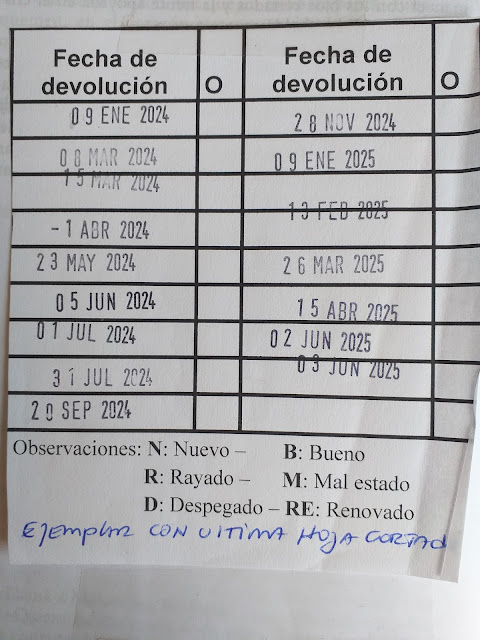 Fecha de devolución O
09 ENE 2024
08 MAR 2024
15 MAR 2024
-1 ABR 2024
23 MAY 2024
05 JUN 2024
01 JUL 2024
31 JUL 2024
20 SEP 2024
Fecha de devolución O
28 NOV 2024
09 ENE 2025
13 FEB 2025
26 MAR 2025
15 ABR 2025
02 JUN 2025
03 JUN 2025
Observaciones: N: Nuevo – B: Bueno
R: Rayado – M: Mal estado
D: Despegado – RE: Renovado
EJEMPLAR CON ULTIMA HOJA CORTAD